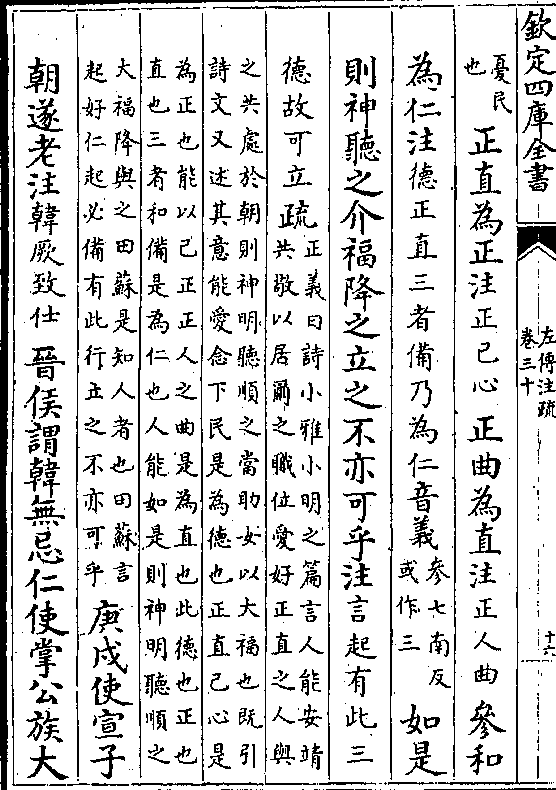 欽定四庫全書
左傳注疏
卷三十
十六
憂民
也
正直為正注正己心正曲為直注正人曲參和
為仁注德正直三者備乃為仁音義
參七南反
或作三
如是
則神聽之介福降之立之不亦可乎注言起有此三
德故可立疏
正義曰詩小雅小明之篇言人能安靖
共敬以居爾之職位愛好正直之人與
之共處於朝則神明聽順之當助女以大福也既引
詩文又述其意能愛念下民是為德也正直己心是
為正也能以己正正人之曲是為直也此德也正也
直也三者和備是為仁也人能如是則神明聽順之
大福降與之田蘇是知人者也田蘇言
起好仁起必備有此行立之不亦可乎
庚戌使宣子
朝遂老注韓厥致仕晉侯謂韓無忌仁使掌公族大